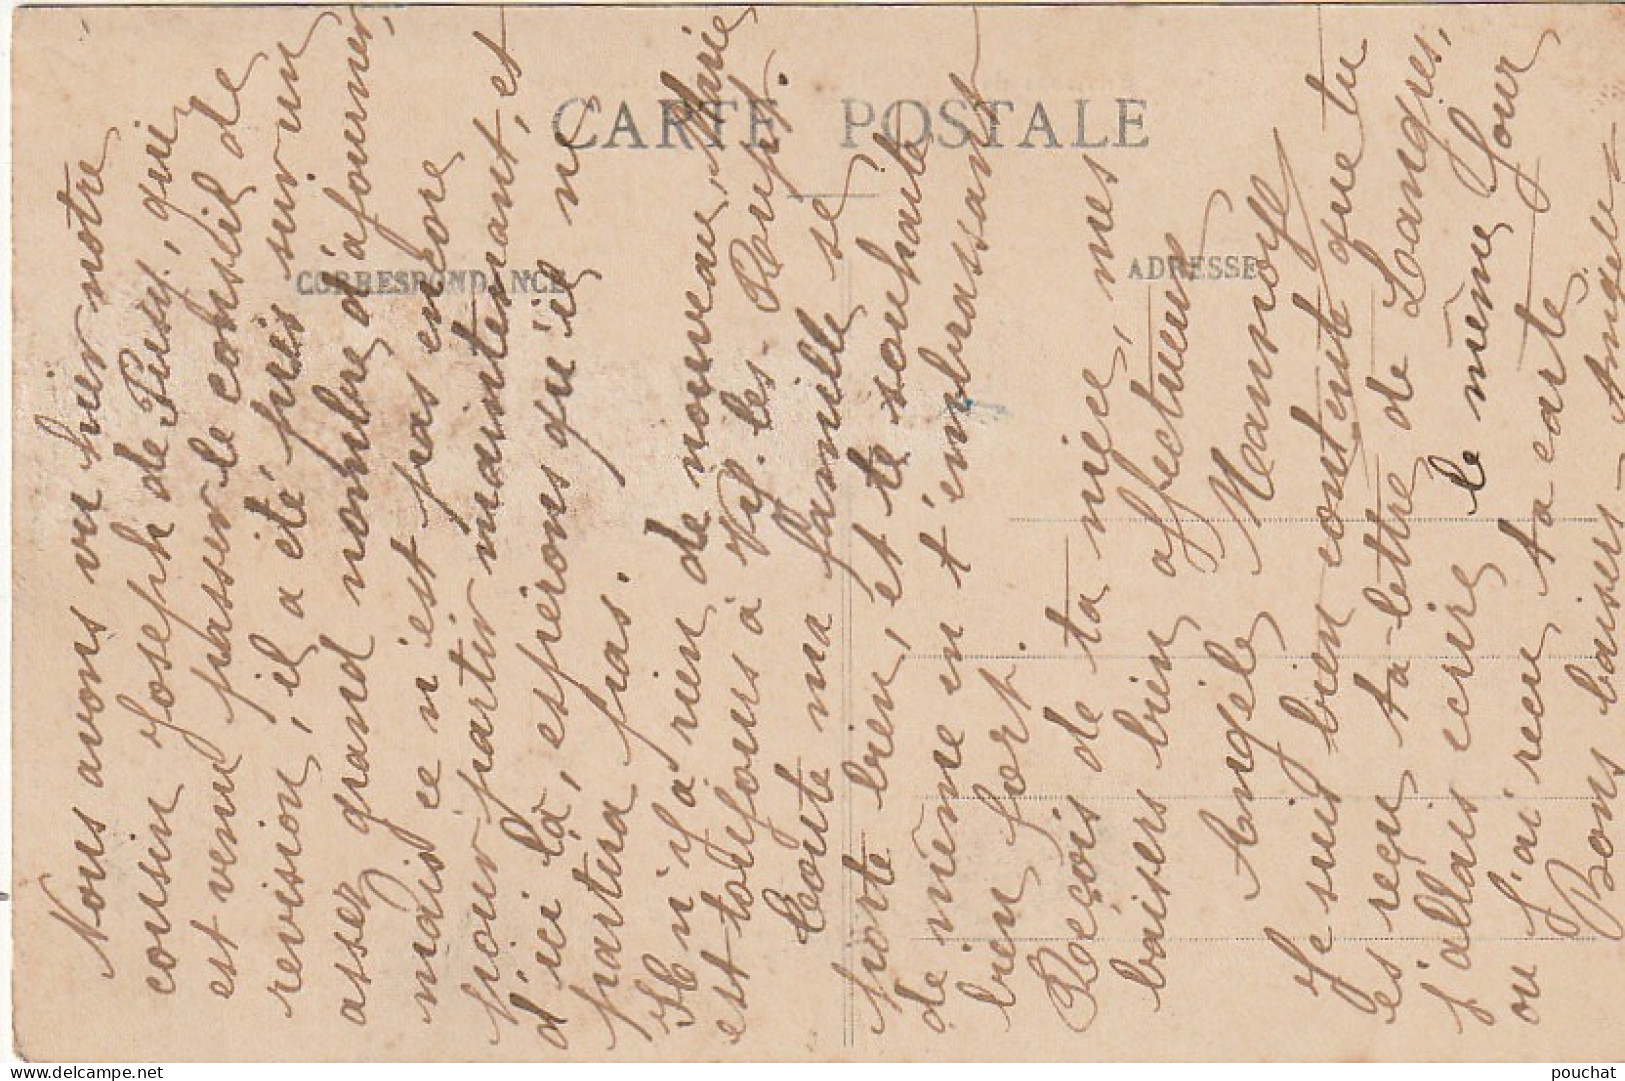 CARTE POSTALE
CORRESPONDANCE
ADRESSE
Nous avons vu hier notre
cousin Joseph de Pusy, qui
est venu passer le conseil de
revision, il a été pris sur un
assez grand nombre d'afourner,
mais ce n'est pas encore
pour partir maintenant, et
d'ici là, espérons qu'il ne
partira pas.
Il n'y a rien de nouveau, Marie
est toujours à N. les Roupt.
Toute ma famille se
porte bien, et te souhaite
de même en t'embrassant
bien fort.
Reçois de ta nièce, mes
baisers bien affectueux
Angèle Mannoye
Je suis bien contente que tu
es reçu ta lettre de Langres,
j'allais ecrire le même jour
ou j'ai recu ta carte
Bons baisers - Angèle
pouchat